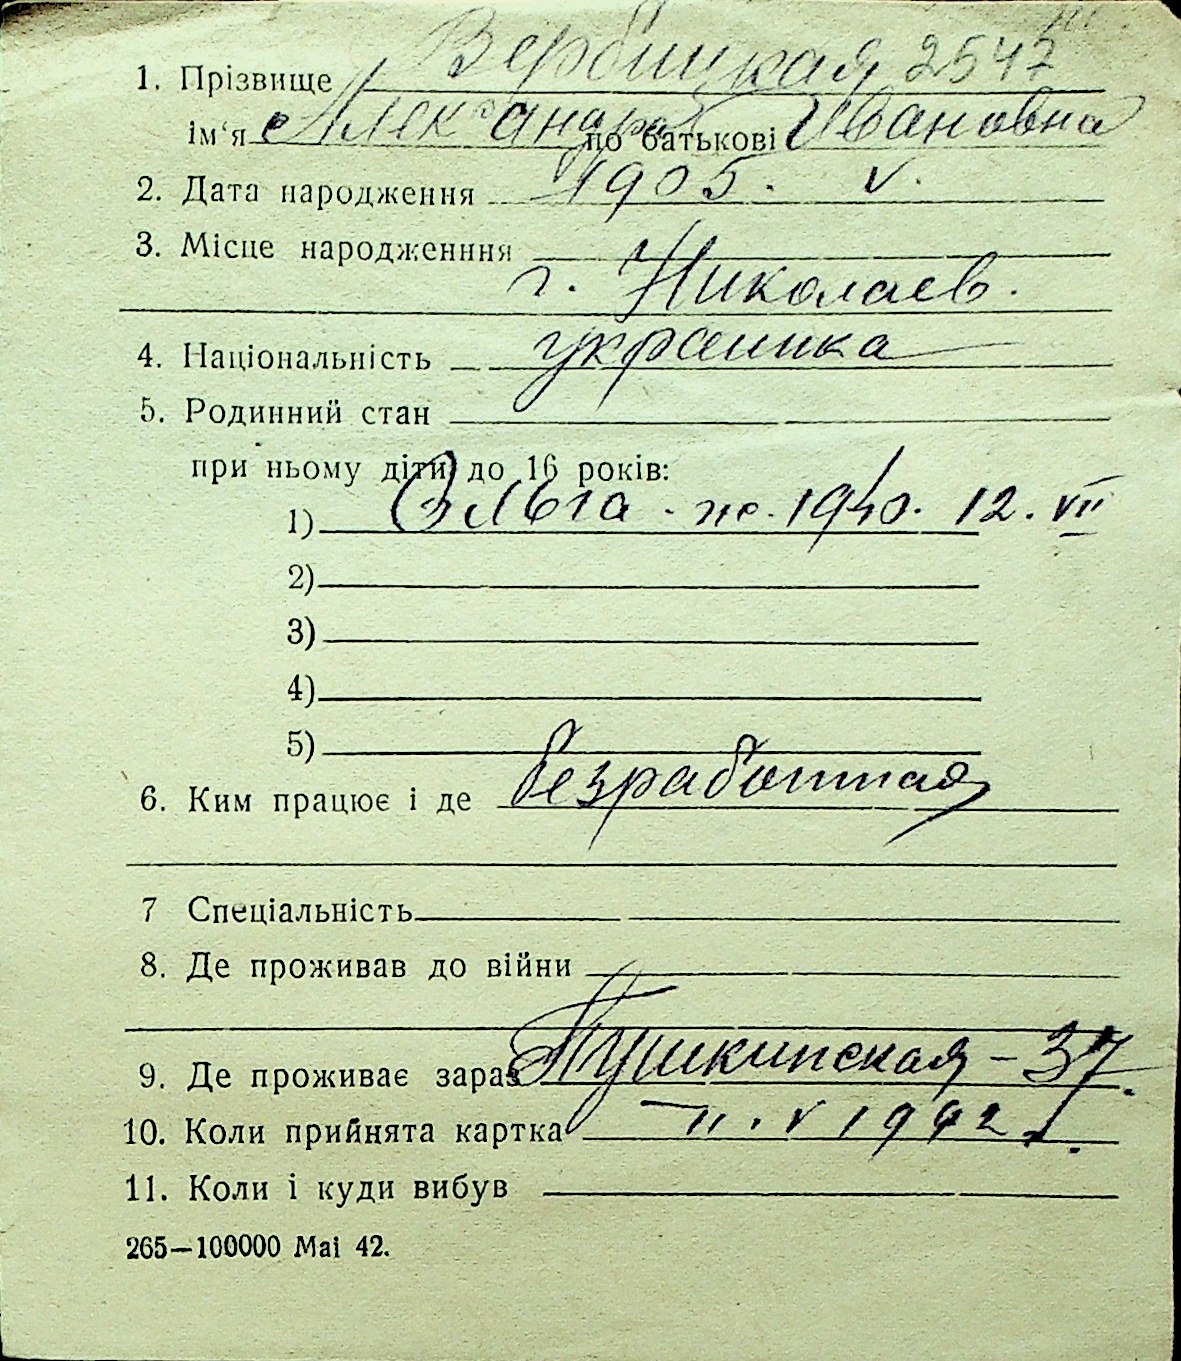 1. Прізвище Вербицкая 2547
ім‘я Александра по батькові Ивановна
2. Дата народження 1905. V.
3. Місце народженння
г. Николаев.
4. Національність украинка
5. Родинний стан
при ньому діти до 16 років:
1) Ольга - ж. 1940. 12. VII
2)
3)
4)
5)
6. Ким працює і де безработная
7 Спеціальність
8. Де проживав до війни
9. Де проживає зараз Пушкинская - 37.
10. Коли прийнята картка V 1942 г.
11. Коли і куди вибув
265—100000 Маі 42.